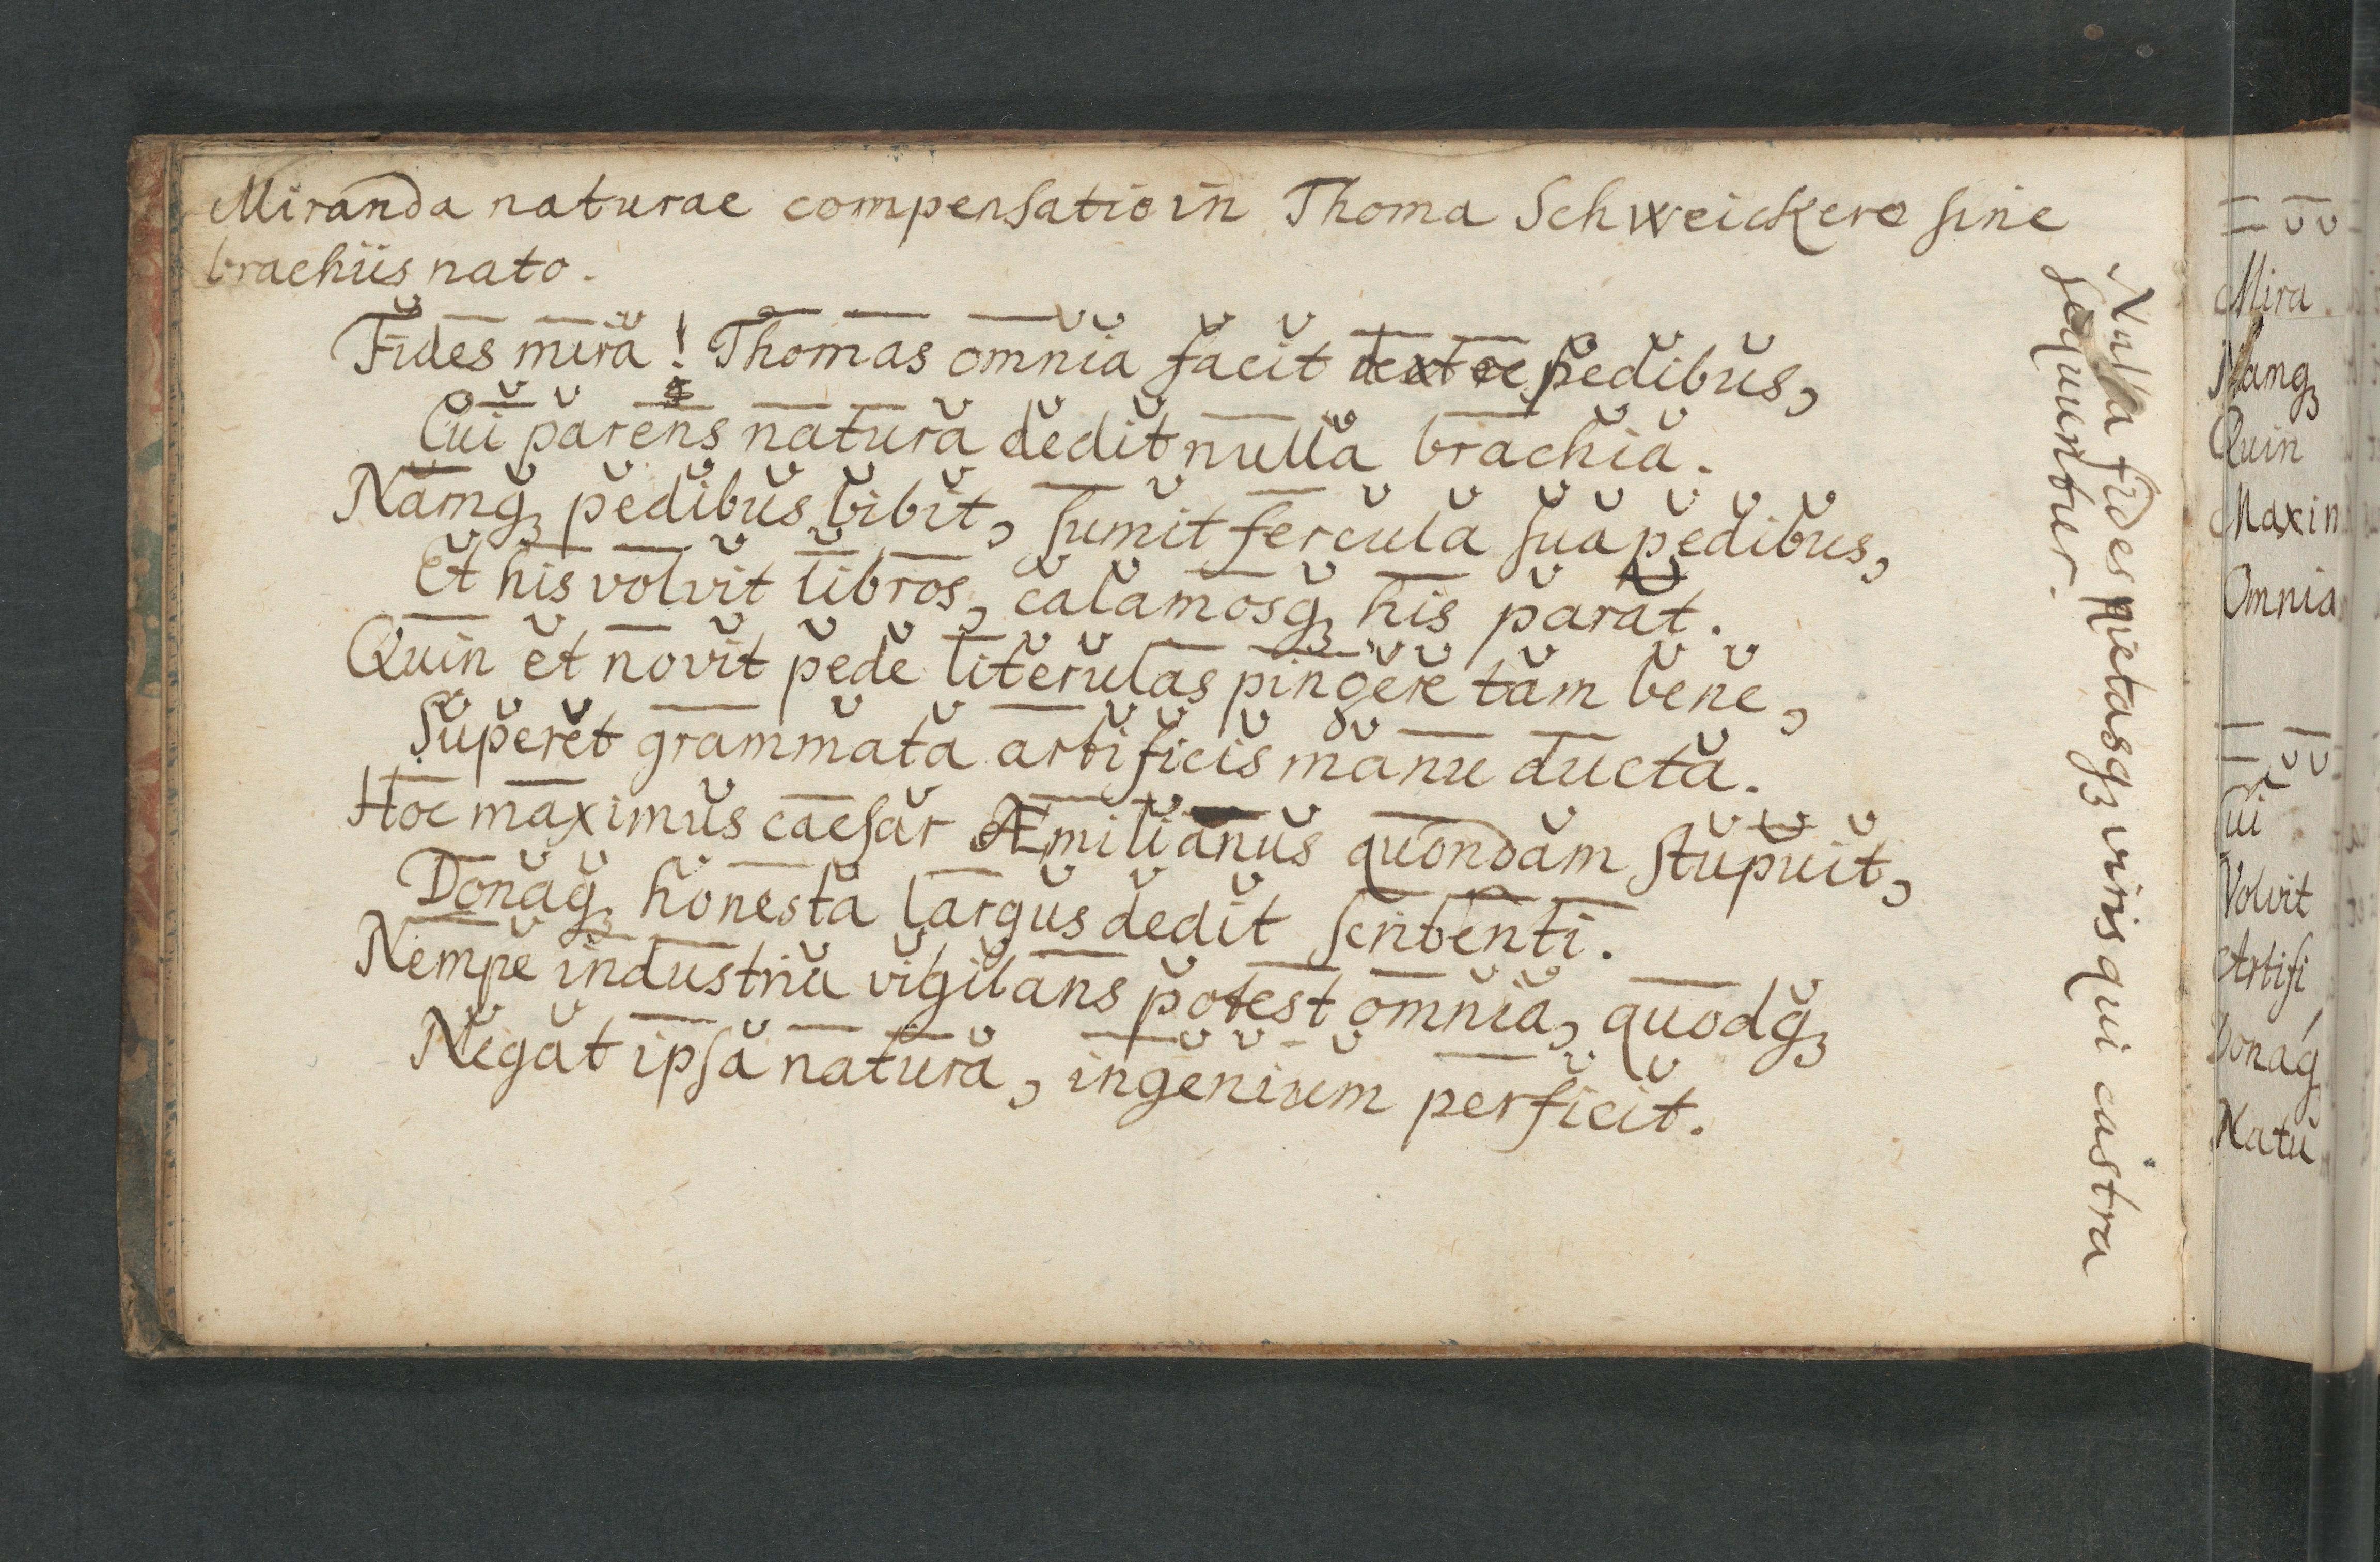 Miranda naturae compensatio in Thoma Schweickero sine
brachiis nato.
Fides mira! Thomas omnia facit dextre pedibus,
Cui parens natura dedit nulla brachia.
Namq́ꝫ pedibus bibit, sumit fercula sua pedibus,
Et his volvit libros, calamosqꝫ his parat.
Quin et novit pede literulas pingere tam bene,
Superet grammata artificis manu ducta.
Hoc maximus caesar Æmilianus quondam stupuit,
Donaqꝫ honesta largus dedit scribenti.
Nempe industriu vigilans potest omnia, quodqꝫ
Negat ipsa natura, ingenium perficit.
Nulla fides pietasqꝫ viris qui castra
sequuntur.
Mira
Namqꝫ
Quin
Maxim
Omnia
Cui
Volvit
Artifi
Donaq́
Natu